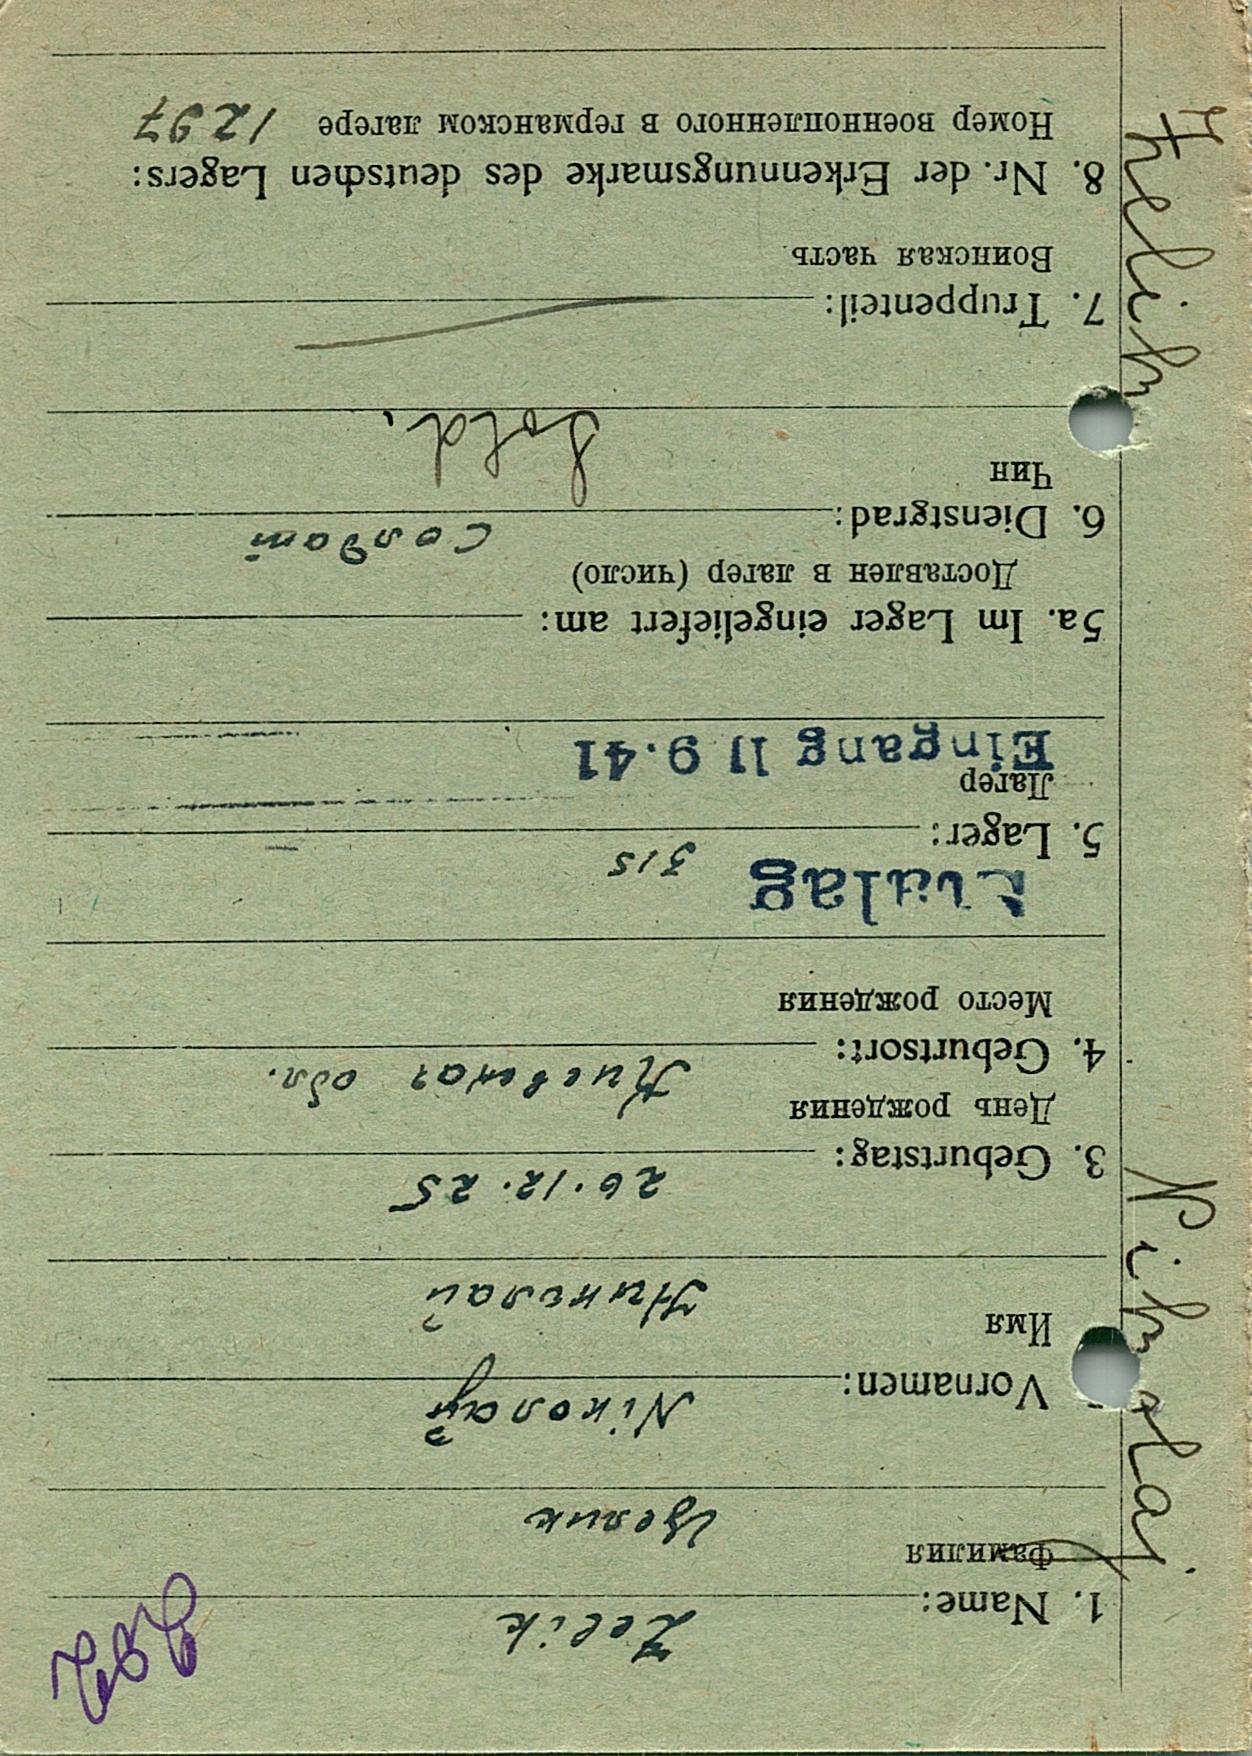 1. Name: Zelik
Фамилия Целик
Vornamen: Nіколай
Имя Николай
3. Geburtstag: 26.12.25
День рождения
4. Geburtsort: Киевская обл.
Место рождения
5. Lager: 315
Лагер
Eingang 11 9.41
5a. Im Lager eingeliefert am:
Доставлен в лагер (число)
6. Dienstgrad: Солдат
Чин Sold.
7. Truppenteil:
Воинская часть
8. Nr. der Erkennungsmarke des deutschen Lagers:
Номер военнопленного в германском лагере 1297
Zelik